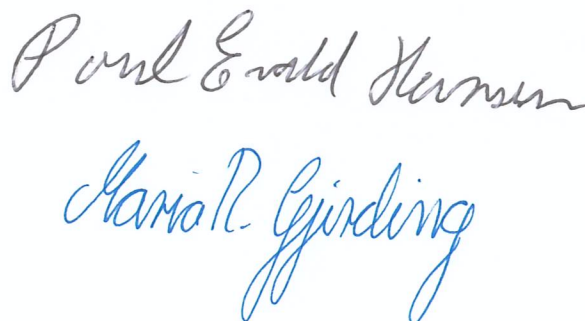 Poul Erik Hansen
Maria R. Gjerding